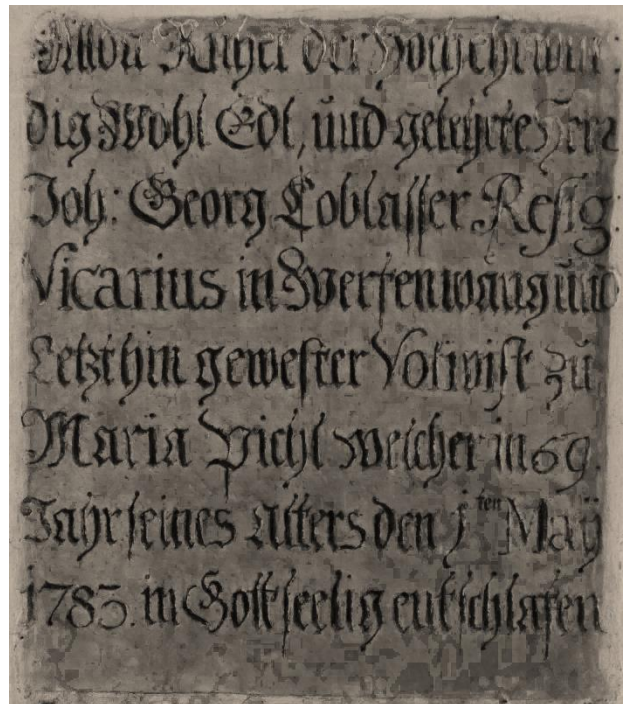 Allda Ruhet der Hochehrwür:
dig Wohl Edl, und gelehrte Herr
Joh: Georg Loblasser Resig:
Vicarius in Wertenwang und
Letzthin gewester Votivist zu
Maria Pichl Welcher in 69.
Jahr seines Alters den 1ten Maÿ
1783. in Gott seelig entschlafen